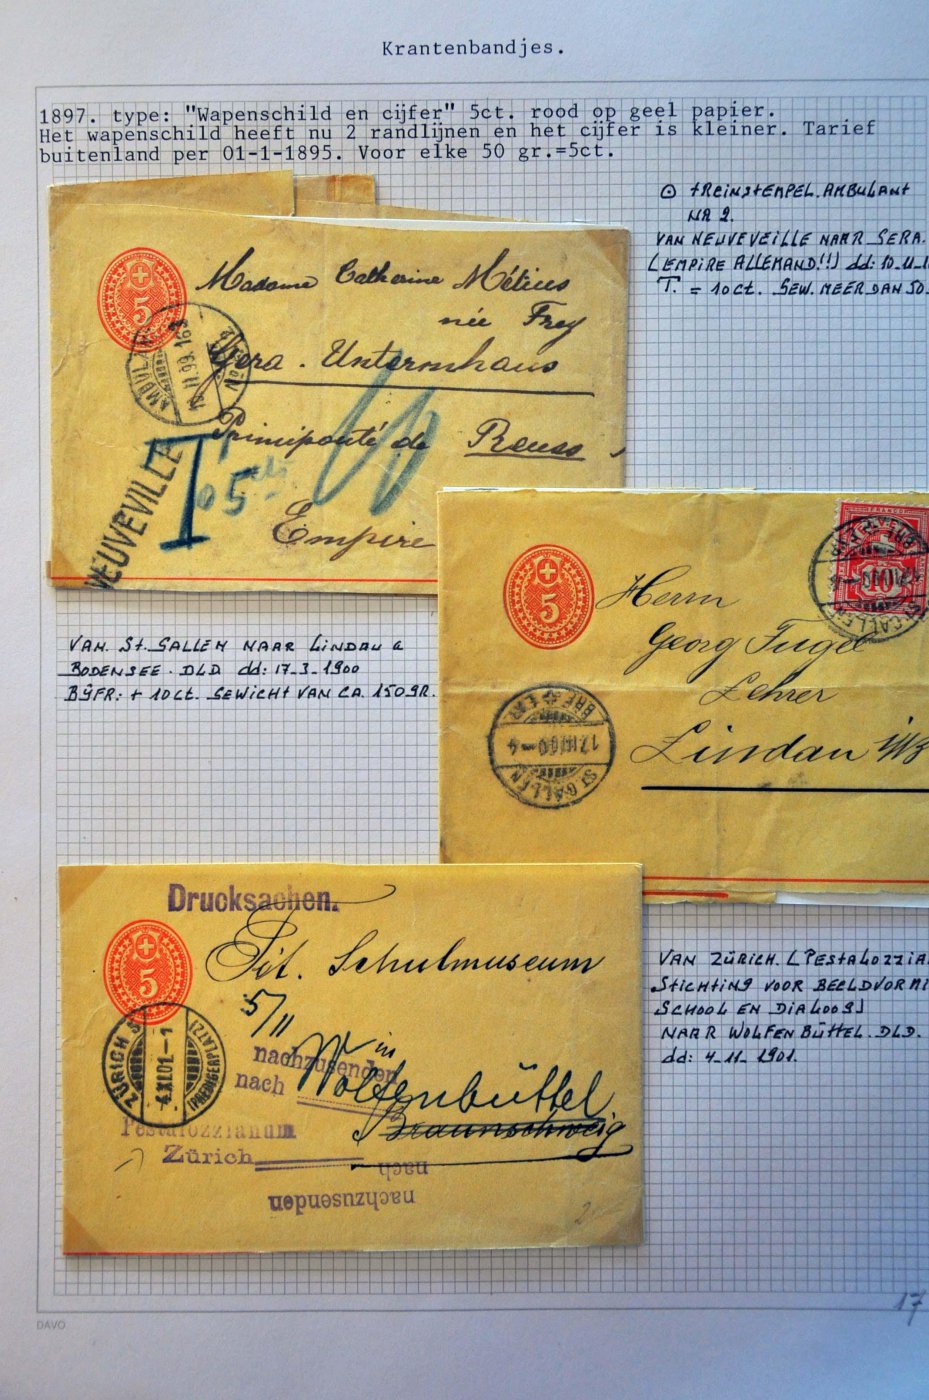 Krantenbandjes.
1897. type: "Wapenschild en cijfer" 5ct. rood op geel papier.
Het wapenschild heeft nu 2 randlijnen en het cijfer is kleiner. Tarief
buitenland per 01-1-1895. Voor elke 50 gr.=5ct.
TREINSTEMPEL. AMBULANT
NR 2.
VAN NEUVEVEILLE NAAR SERA.
(EMPIRE ALLEMAND!!) dd: 10.11.
T. = 10CT. GEW. MEER DAN 50.
5
Madame Catherine Métius
née Frey
Gera - Untermhaus
Principauté de Reuss
Empire
AMBULANT
10.II.99.163
No 2
NEUVEVILLE
T
05 cts
10
VAN St. GALLEN NAAR LINDAU a
BODENSEE. DLD dd: 17-3-1900
BYFR: + 10CT. GEWICHT VAN CA. 150GR.
5
FRANCO
10
Herrn
Georg Fugel
Lehrer
Lindau i/B
ST. GALLEN
17.III.00-4
BRF. EXP.
ST. GALLEN
Drucksachen.
5
Tit. Schulmuseum
5/11
in
Wolfenbüttel
Braunschweig
nachzusenden
nach
ZÜRICH 5
4.XI.01.-1
(PREDIGERPLATZ)
Pestalozzianum
Zürich
nach
nachzusenden
VAN ZÜRICH. (PESTALOZZIA
STICHTING VOOR BEELDVORMI
SCHOOL EN DIALOOG)
NAAR WOLFENBÜTTEL. DLD.
dd: 4-11-1901.
17
DAVO